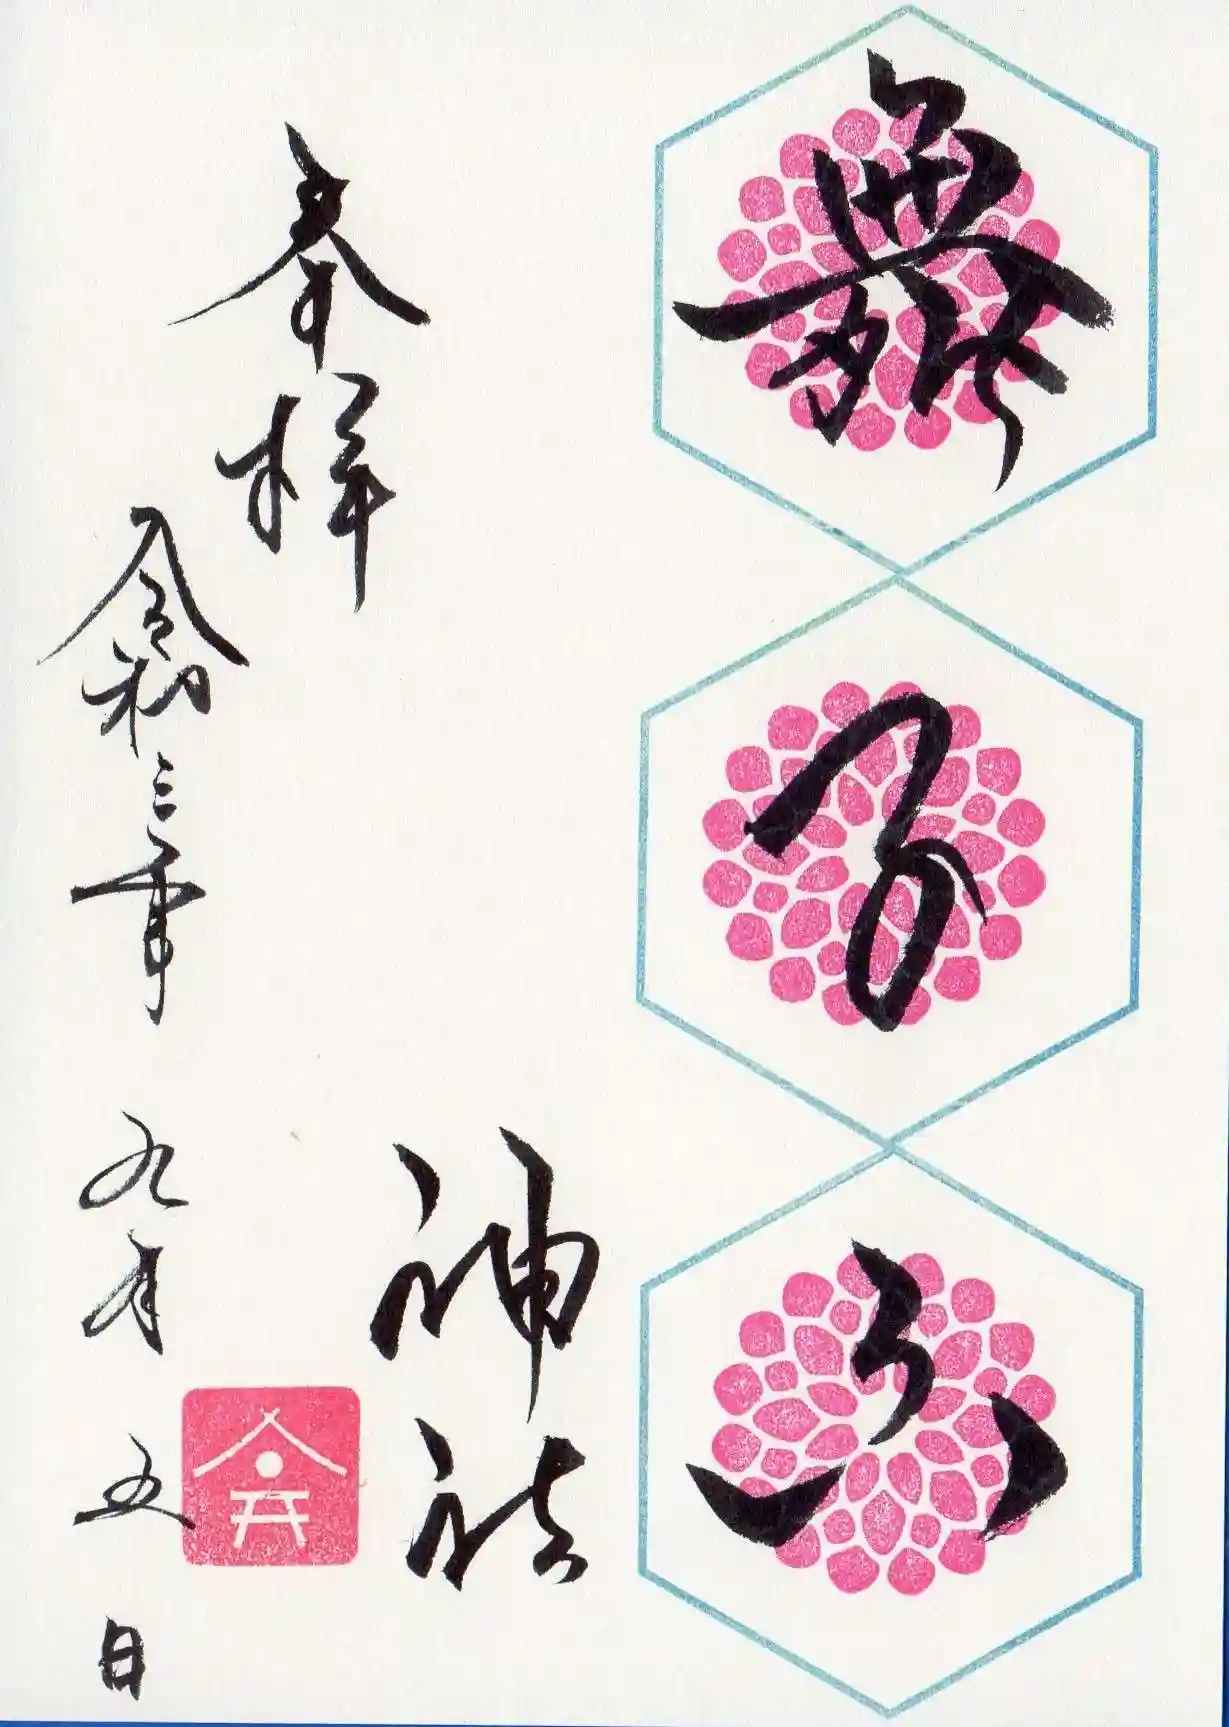 舞子六
神社
奉拝
令和三年九月五日